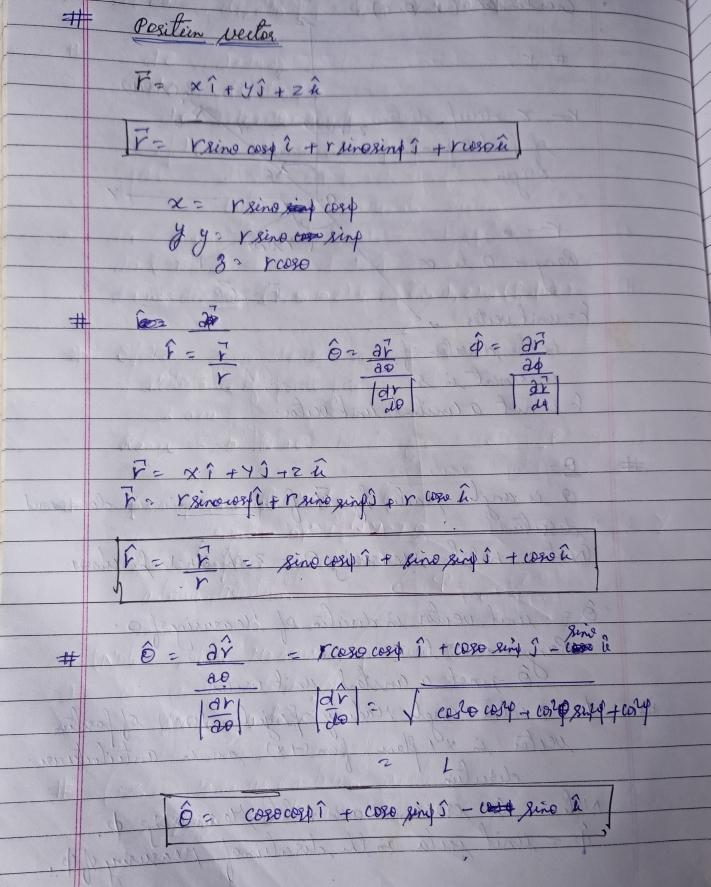 # Position vector
r⃗ = xî + yĵ + zk̂
r⃗ = rsinθ cosφ î + r sinθ sinφ ĵ + rcosθ k̂
x = rsinθ cosφ
y y = r sinθ sinφ
z = rcosθ
#
r̂ = r⃗ / r    θ̂ = ∂r⃗/∂θ / |dr/dθ|    φ̂ = ∂r⃗/∂φ / |∂r⃗/dφ|
r⃗ = xî + yĵ + zk̂
r⃗ = rsinθcosφ î + r sinθ sinφ ĵ + r cosθ k̂
r̂ = r⃗ / r = sinθ cosφ î + sinθ sinφ ĵ + cosθ k̂
# θ̂ = ∂r̂/∂θ / |∂r/∂θ| = rcosθ cosφ î + cosθ sinφ ĵ - sinθ k̂
|dr̂/dθ| = √ cos²θ cos²φ + cos²θ sin²φ + cos²φ
= 1
θ̂ = cosθcosφ î + cosθ sinφ ĵ - sinθ k̂